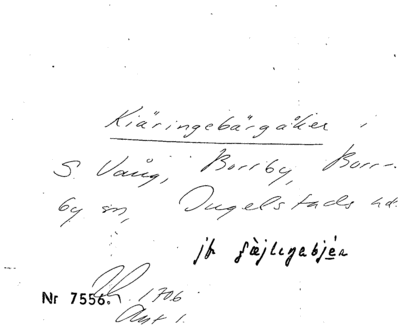 Kiäringebärgåker i
S. Vång, Borrby, Borr-
by sn, Ingelstads hd.
jfr
Nr 7556. 1706
Akt 1.